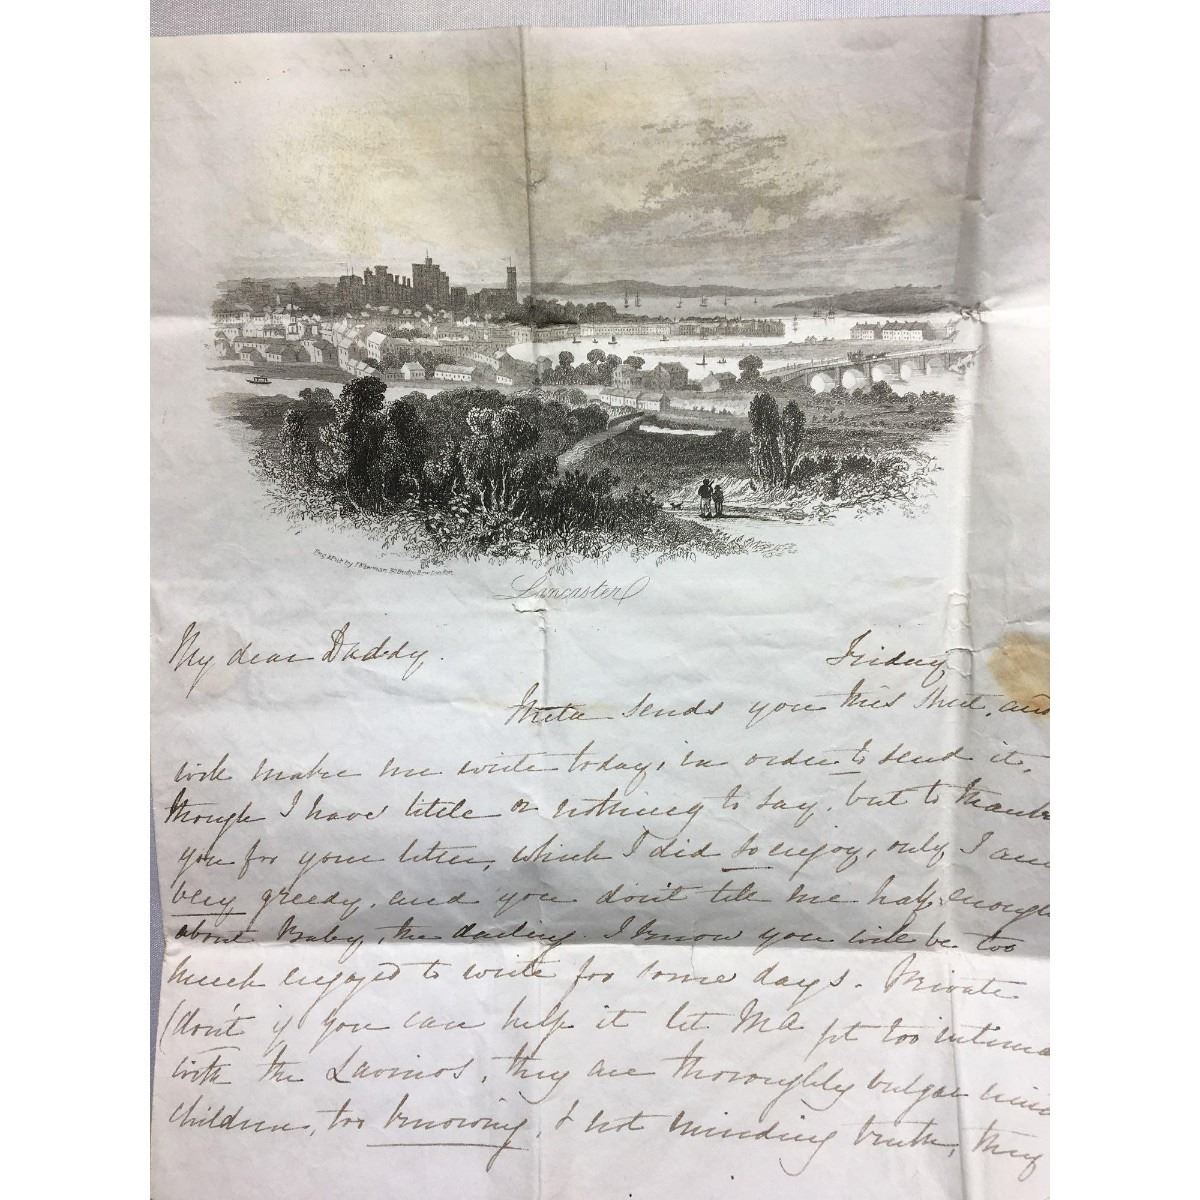 Eng. & Pub. by J. Newman 48 London
Lancaster
My dear Daddy.
Friday
Meta sends you this sheet, and
will make me write today, in order to send it,
though I have little or nothing to say, but to thank
you for your letter, which I did so enjoy, only I am
very greedy, and you don't tell me half enough
about Baby, the darling. I know you will be too
much engaged to write for some days. Private
(don't if you can help it let MA get too intima
with the they are thoroughly vulgar mind
children, too knowing, & not minding truth, they